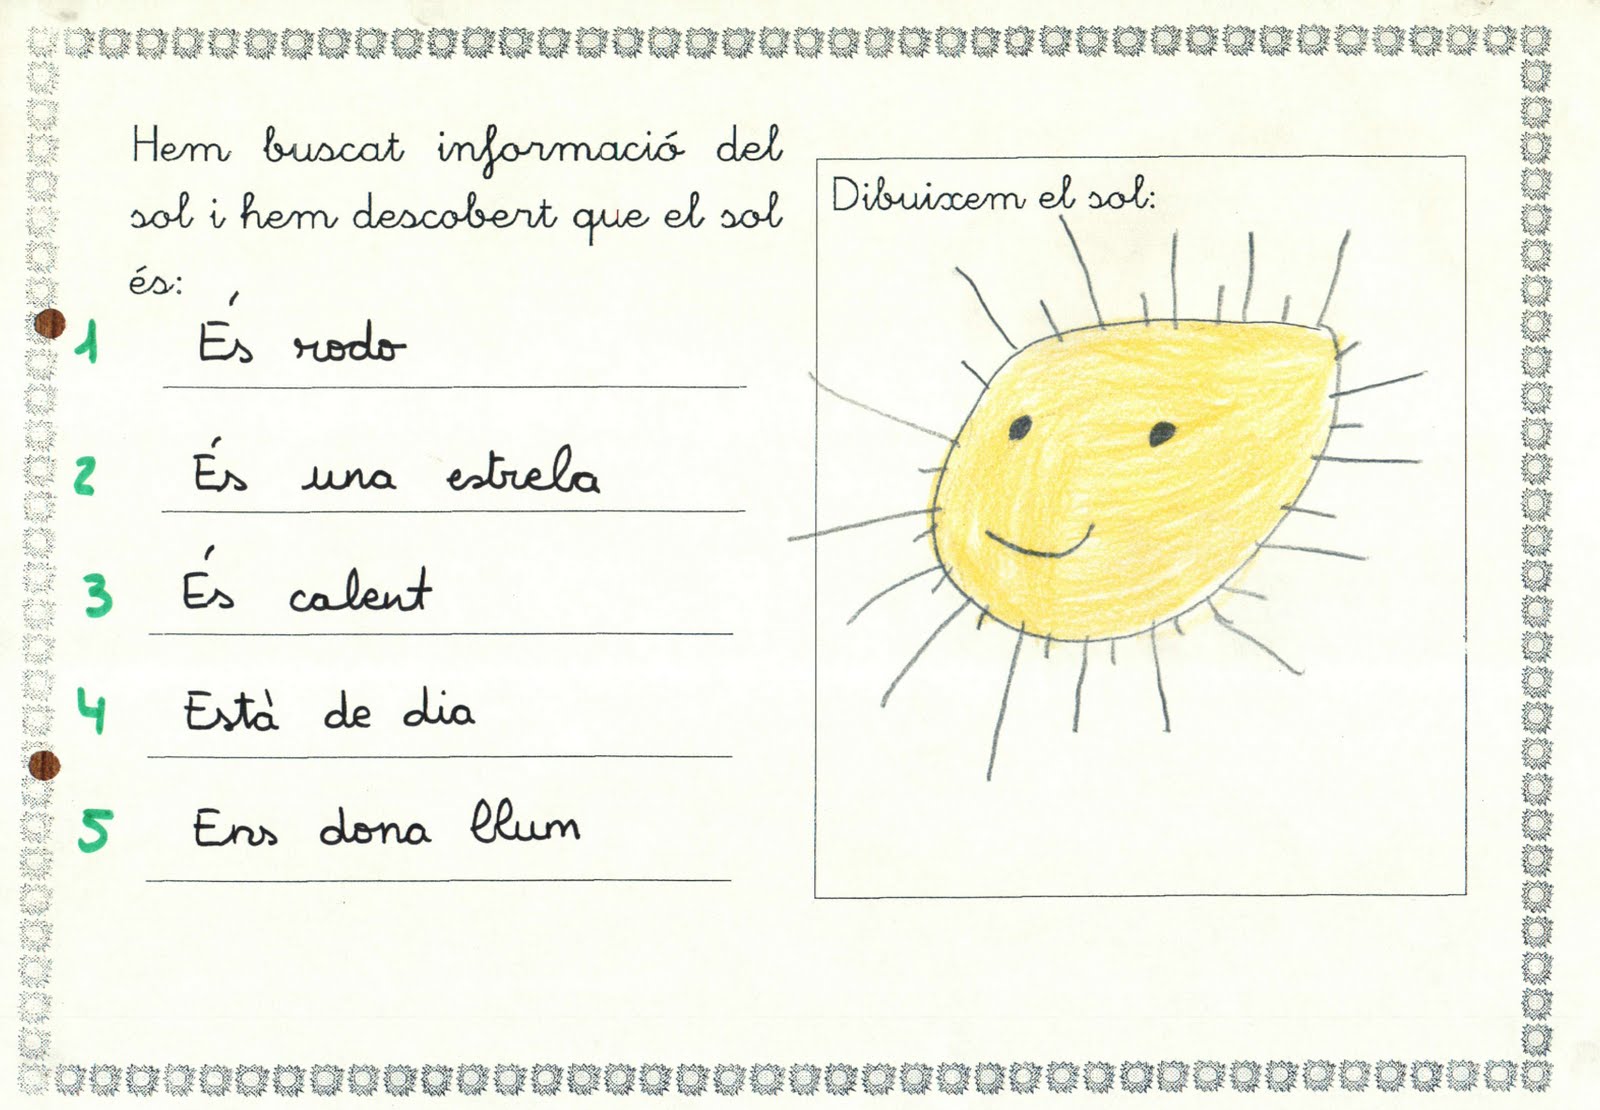 Hem buscat informació del
sol i hem descobert que el sol
és:
1 És rodo
2 És una estrela
3 És calent
4 Està de dia
5 Ens dona llum
Dibuixem el sol: